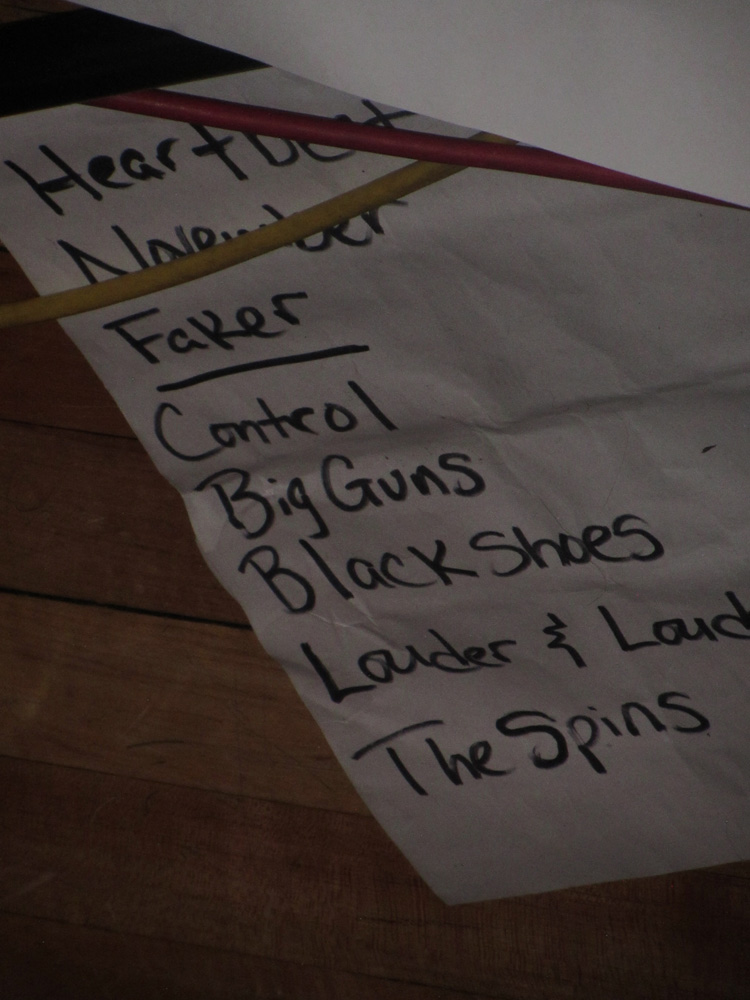 Heartbeat
November
Faker
Control
Big Guns
Black Shoes
Louder & Loud
The Spins